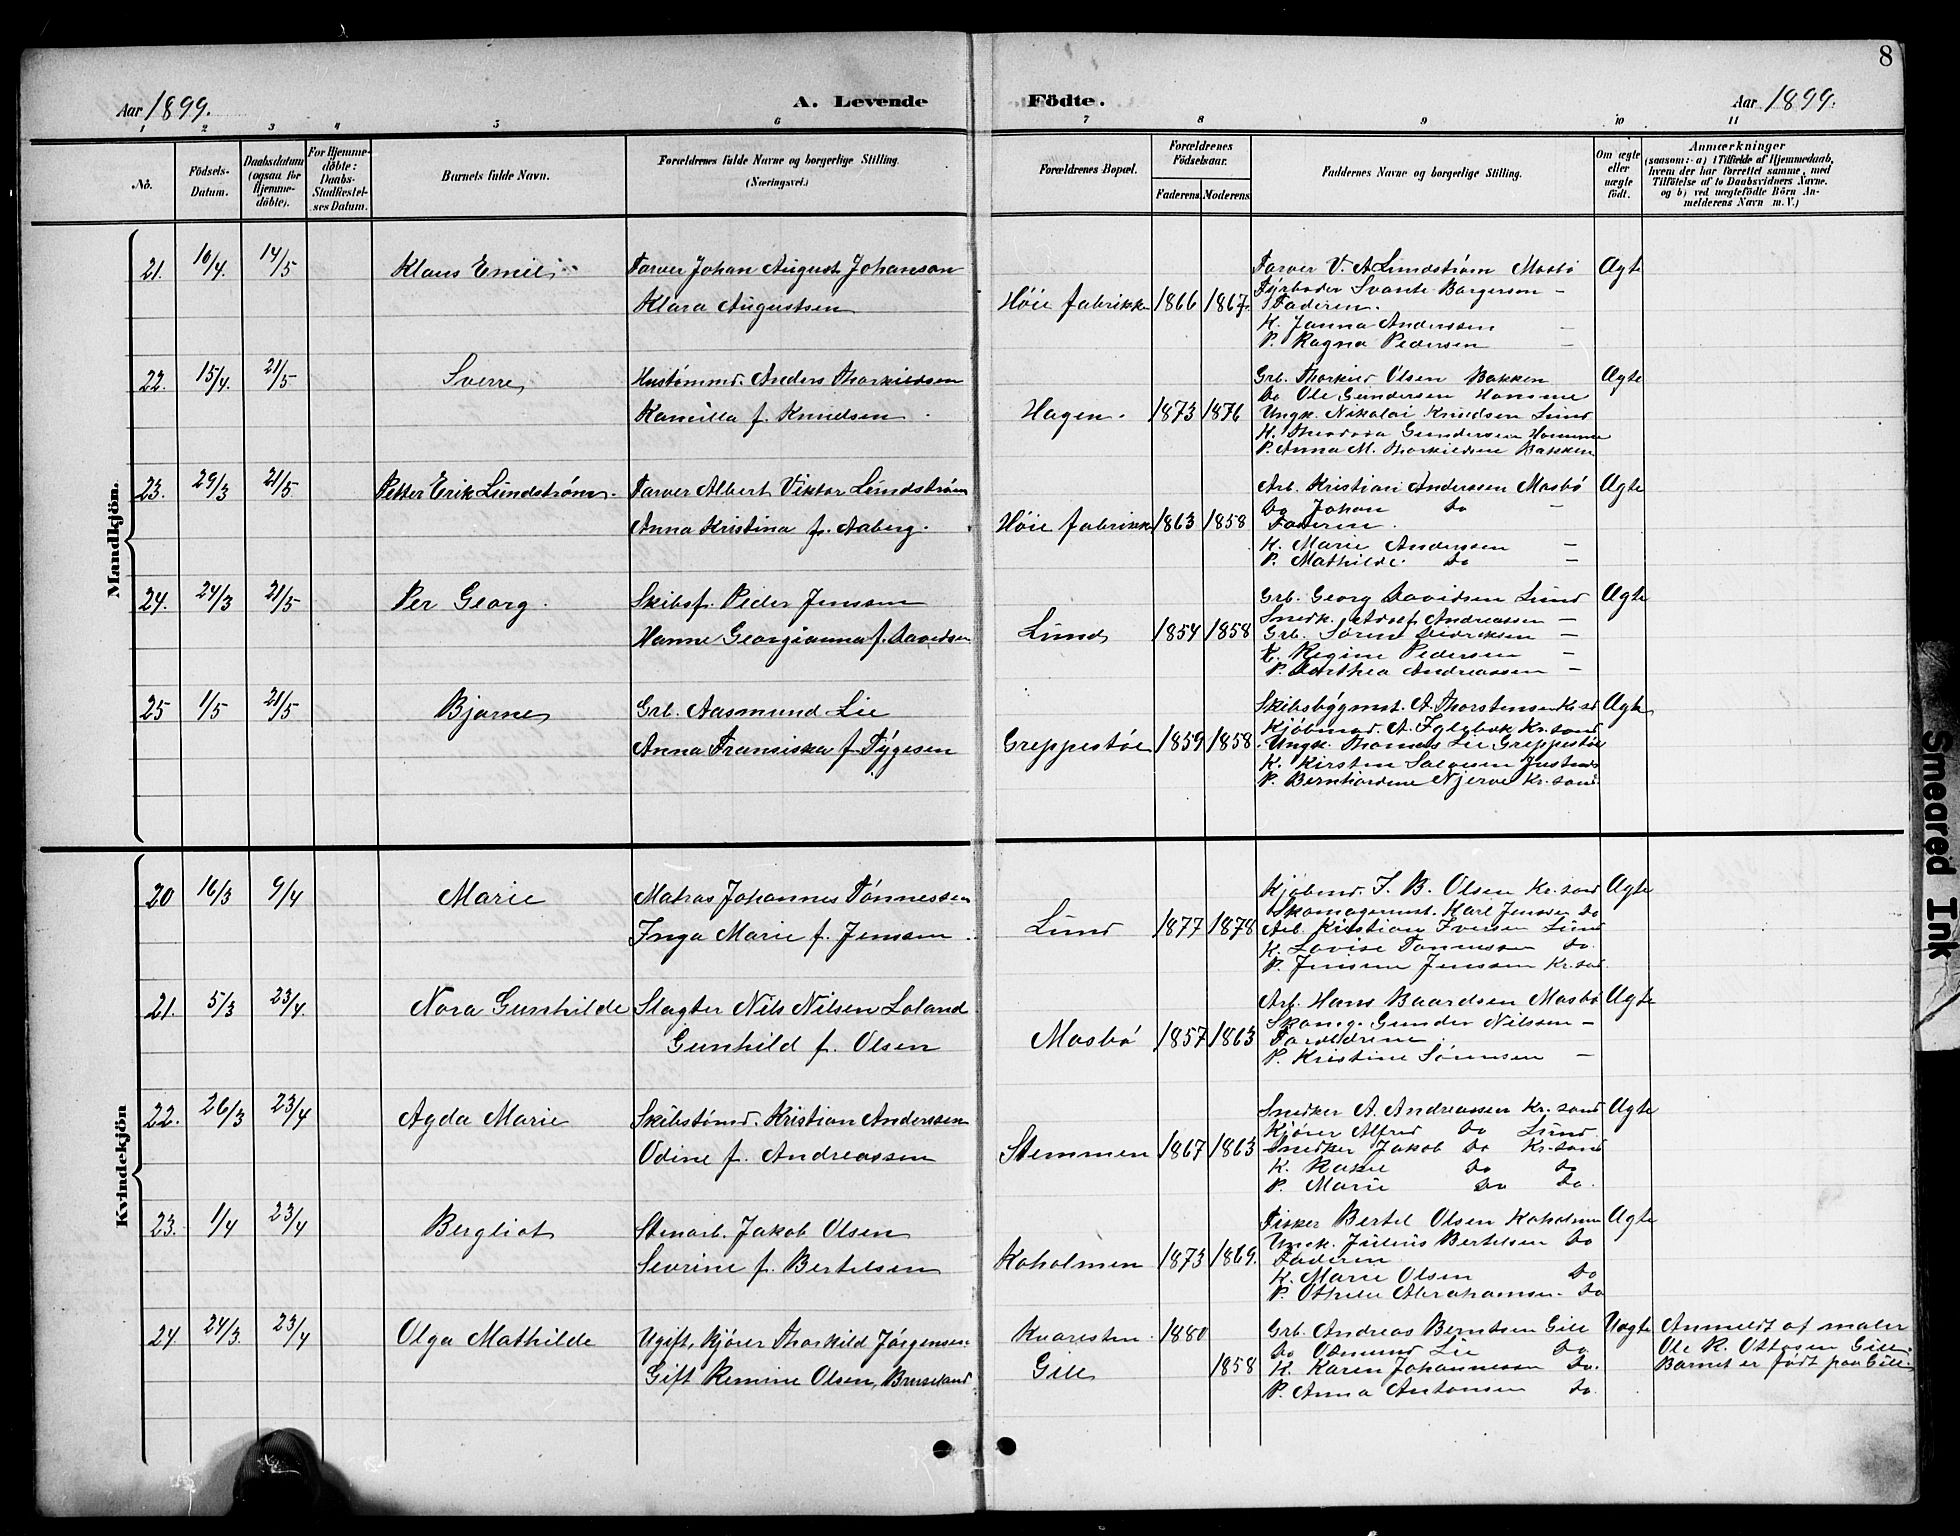 8
Aar 1899. A. Levende Födte. Aar 1899.
1 2 3 4 5 6 7 8 9 10 11
No. Födsels-Datum. Daabsdatum (ogsaa for Hjemme-döbte). For Hjemme-döbte: Daabs-Stadfæstel-ses Datum. Barnets fulde Navn. Forældrenes fulde Navne og borgerlige Stilling. (Næringsvei.) Forældrenes Bopæl. Forældrenes Födselsaar. Faderens Moderens Faddernes Navne og borgerlige Stilling. Om ægte eller uægte födt. Anmærkninger (saasom: a) i Tilfælde af Hjemmedaab, hvem der har forrettet samme, med Tilföielse af to Daabsvidners Navne, og b) ved uægtefödte Börn An-melderens Navn m. V.)
Mandkjön.
21. 10/4. 14/5 Klaus Emil Farver Johan August Johanson
Klara Augustsen
Høie fabrikker 1866 1867.
Farver V. A Lundstrøm Mosbø Ægte
Svante Borgerson –
Faderen.
K. Janna Anderssen –
P. Ragna Pedersen –
22. 15/4. 21/5 Sverre Anders Thorkildsen
Kamilla f. Knudsen
Hagen. 1873 1876
Grb. Thorkild Olsen Bakken Ægte
Do Ole Gundersen Homme
Ungk. Nikolai Knudsen Lund
K. Theodora Gundersen Homme
P. Anna M. Thorkildsen Bakken
23. 29/3 21/5. Petter Erik Lundstrøm. Farver Albert Viktor Lundstrøm
Anna Kristina f. Aaberg.
Høie fabrikker 1863 1858
Arb. Kristian Anderssen Mosbø Ægte
Do Johan Do –
Faderen.
K. Marie Anderssen –
P. Mathilde Do –
24. 24/3 21/5 Per Georg. Skibsf. Peder Jenssen
Hanne Georgianna f. Davidsen
Lund 1854 1858
Grb. Georg Davidsen Lund Ægte
Snedk. Adolf Andreassen –
Grb. Søren Didriksen –
K. Regine Pedersen –
P. Dorthea Andreassen –
25 1/5 21/5 Bjarne Grb. Aasmund Lie
Anna Fransiska f. Tygesen
Greppestøl 1859 1858
Skibsbygmst. A. Thorstensen Kr.sd Ægte
Kjøbmnd. A. Kr.sand
Ungk. Thomas Lie Greppestøl
K. Kirsten Salvesen
P. Bernhardine Njerve Kr.sand
Kvindekjön
20 16/3 9/4 Marie Matros Johannes Tønnessen
Inga Marie f. Jensen
Lund 1877 1878
Kjøbmd. I. B. Olsen Kr.sand Ægte
Skomagermst. Karl Jenssen Do
Arb. Kristian Iversen Lund
K. Lovise Tønnessen Do.
P. Jensine Jenssen Kr.sd.
21. 5/3 23/4. Nora Gunhilde Slagter Nils Nilsen Loland
Gunhild f. Olsen
Mosbø 1857 1863
Arb. Hans Baardsen Mosbø Ægte
Skomg. Gunder Nilssen –
Forældrene
P. Kristine Sørensen –
22. 26/3 23/4 Agda Marie Skibstømd. Kristian Anderssen
Odine f. Andreassen
Stemmen 1867 1863
Snedker A. Andreassen Kr.sand Ægte
Kjører Alfred Do Lund
Snedker Jakob Do Kr.sand
K. Rakel Do Do
P. Marie Do Do.
23. 1/4 23/4 Bergliot Stenarb. Jakob Olsen
Severine f. Bertelsen
Koholmen 1873 1869.
Fisker Bertel Olsen Koholmen Ægte
Ungk. Julius Bertelsen Do
Faderen
K. Marie Olsen Do
P. Othilie Abrahamsen. Do
24. 24/3. 23/4 Olga Mathilde Ugift, kjører Thorkild Jørgensen.
Gift Remine Olsen, Bruseland
Kvaresten. 1880
Gill 1858
Grb. Andreas Berntsen Gill Uægte Anmeldt af maler
Do Osmund Lie Do Ole R. Ottosen Gill.
K. Karen Johannessen Do. Barnet er født paa Gill.
P. Anna Antonsen Do.
Smeared Ink